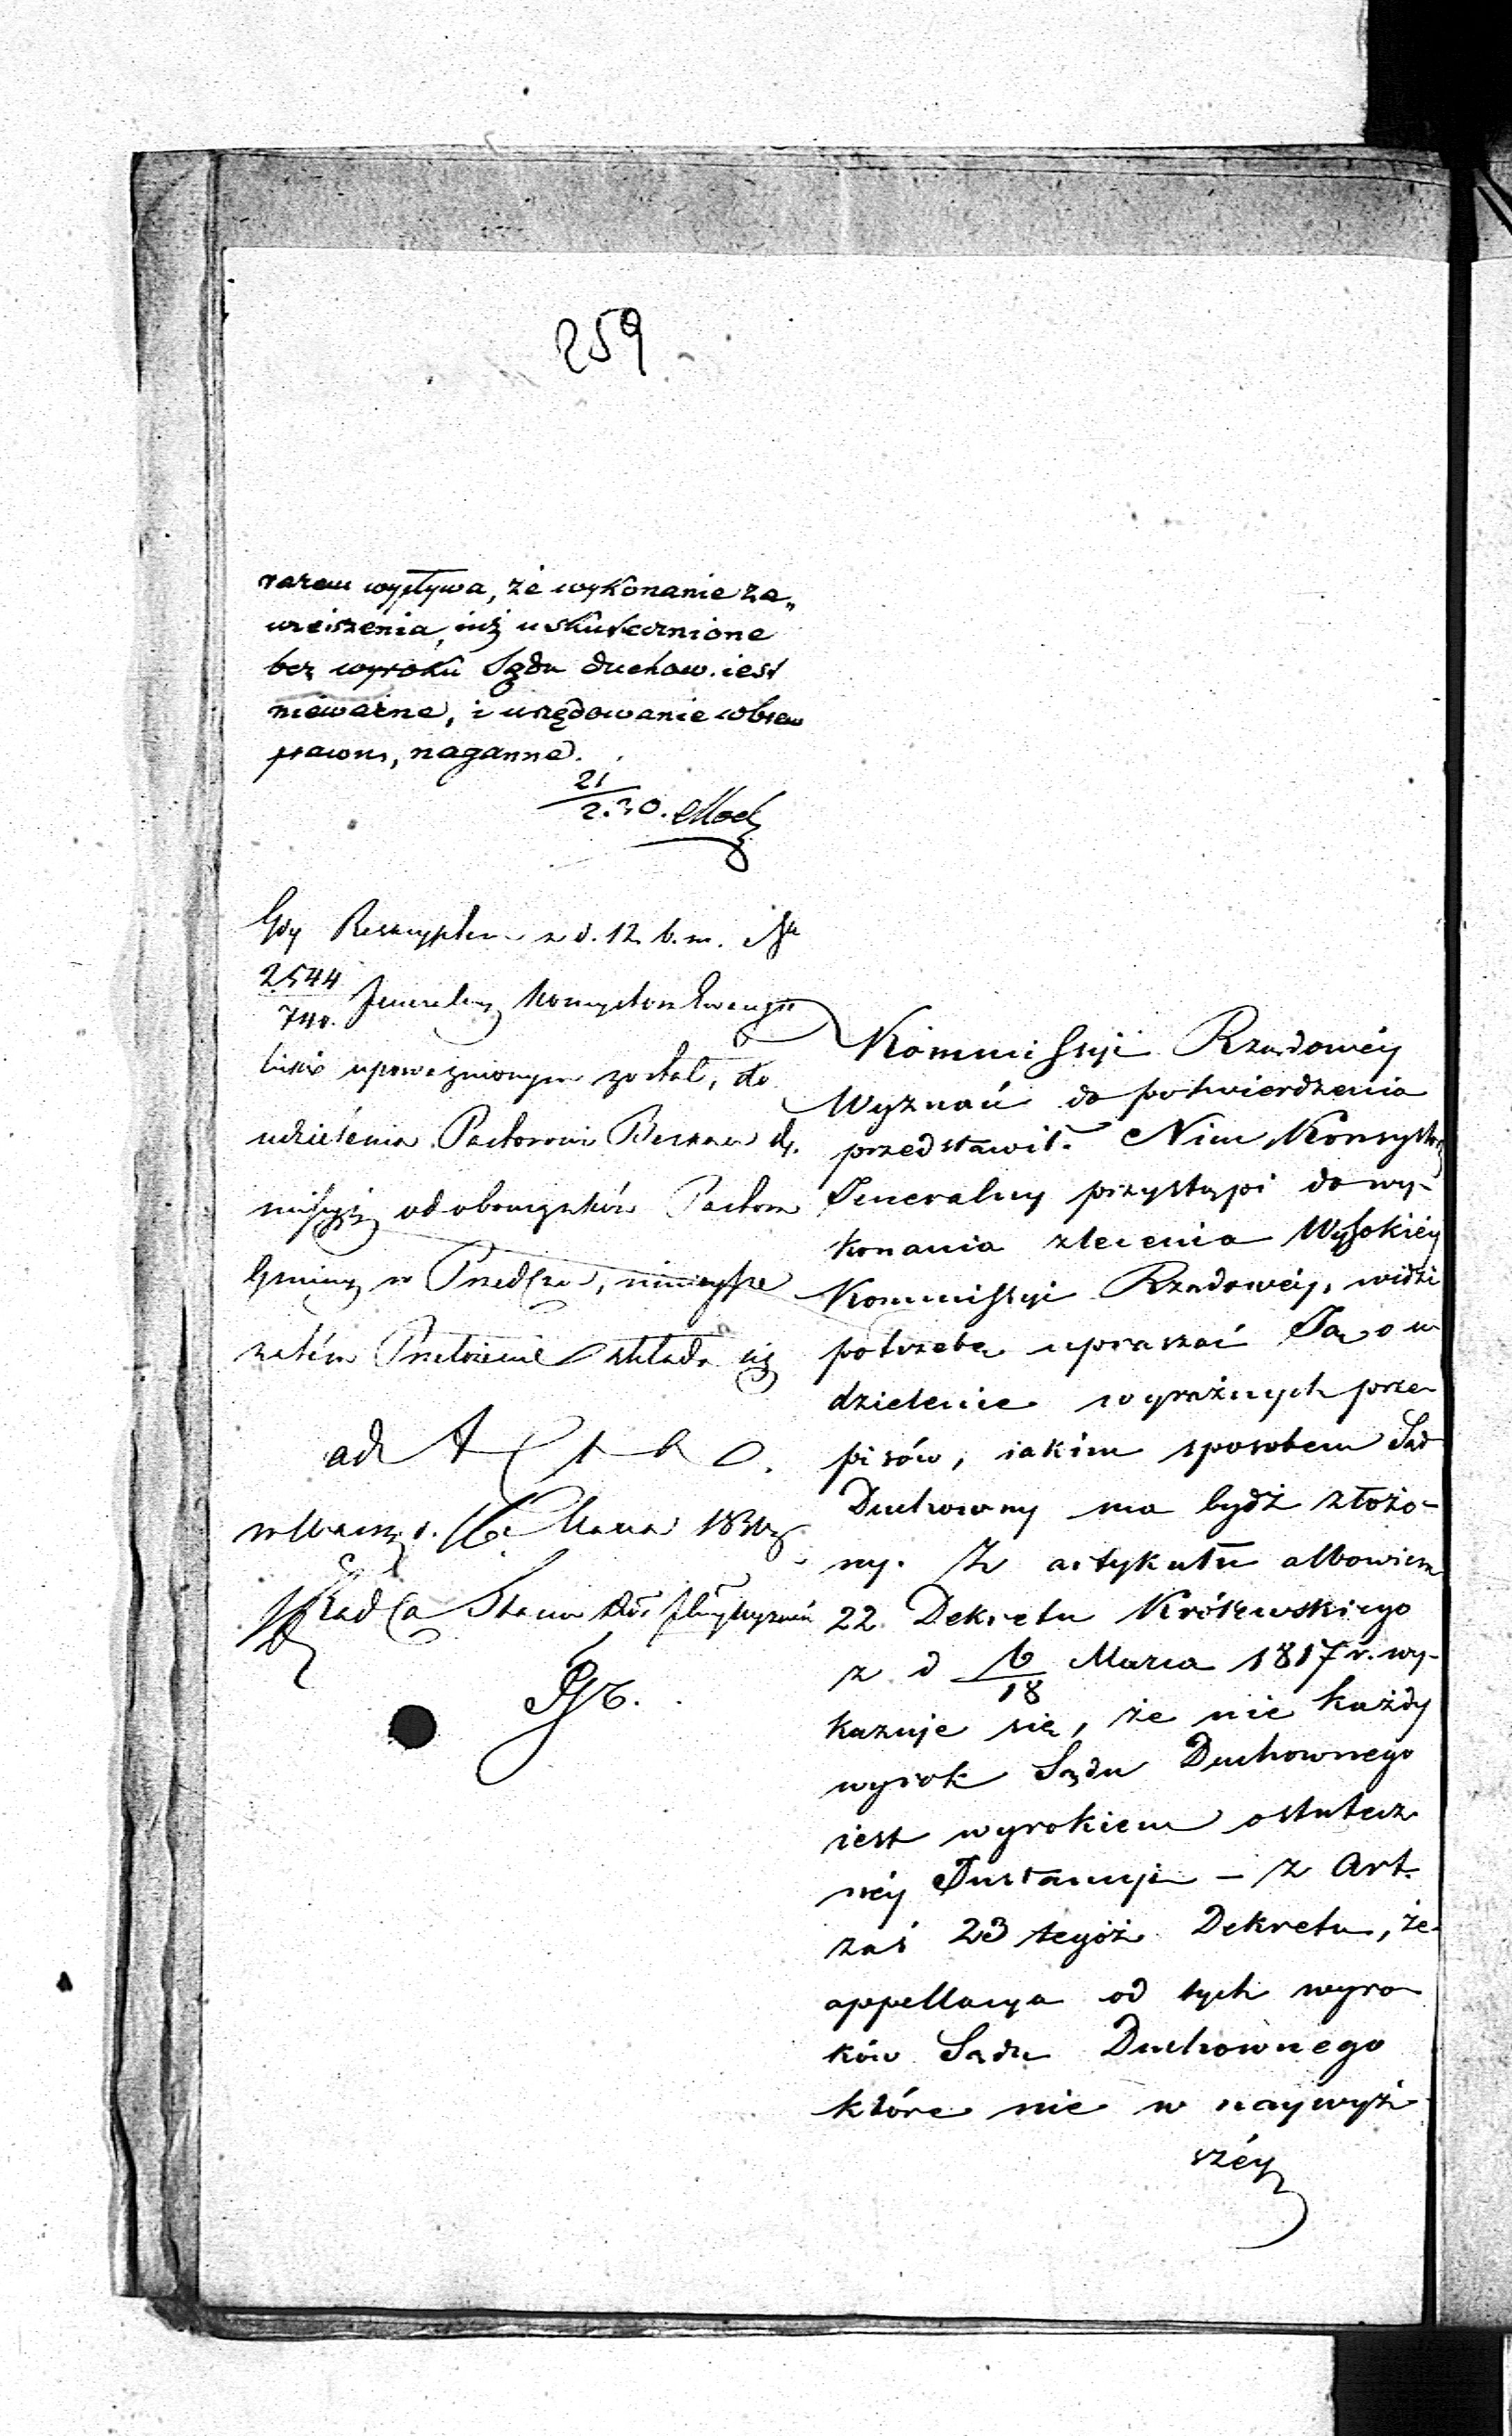 259
razem wypływa, że wykonanie za„
wieszenia, iuż uskutecznione
bez wyroku Sądu duchow. iest
nieważne, i urzędowanie wbrew
prawu, naganne.
21/2.30.
Gdy Reskryptem z d. 12. b. m. Nr
2544/740. Jeneralny Konsystorz Ewange
licki upoważnionym został, do
udzielenia Pastorowi dy.
missyi od obowiązków Pastora
Gminy w Przedczu, ninieysze
zatém Przełożenie składa się
ad Acta.
w Warsz. d. 16. Marca 1830 r.
Radca Stanu
Kommissyi Rządowéy
Wyznań do potwierdzenia
przedstawił. Nim Konsystorz
Jeneralny przystąpi do wy-
konania zlecenia Wysokiéy
Kommissyi Rządowéy, widzi
potrzebę upraszać Ją o u
dzielenie wyraźnych prze-
pisów, iakim sposobem Sąd
Duchowny ma bydź złożo-
ny. Z artykułu albowiem
22 Dekretu Królewskiego
z d 6/18 Marca 1817 r. wy-
kazuje się, że nie każdy
wyrok Sądu Duchownego
iest wyrokiem ostatecz
néy Instancyi – z Art.
zaś 23 tegoż Dekretu, że
appellacya od tych wyro-
ków Sądu Duchownego
które nie w naywyż-
széy